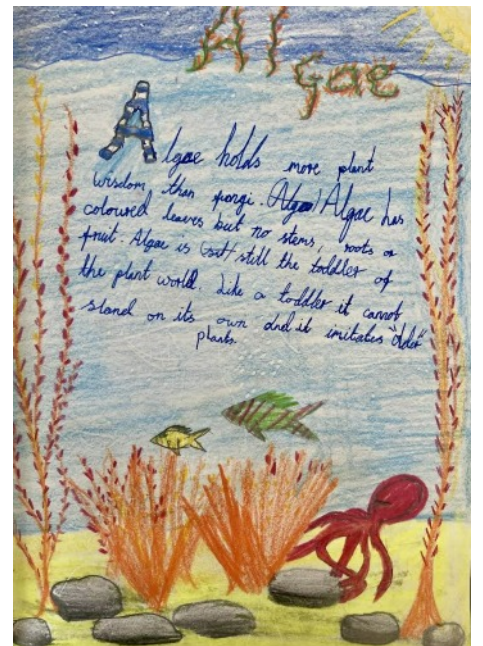 Algae
Algae holds more plant
wisdom than fungi. Algae has
coloured leaves but no stems, roots or
fruit. Algae is still the toddler of
the plant world. Like a toddler it cannot
stand on its own and it imitates "older"
plants.